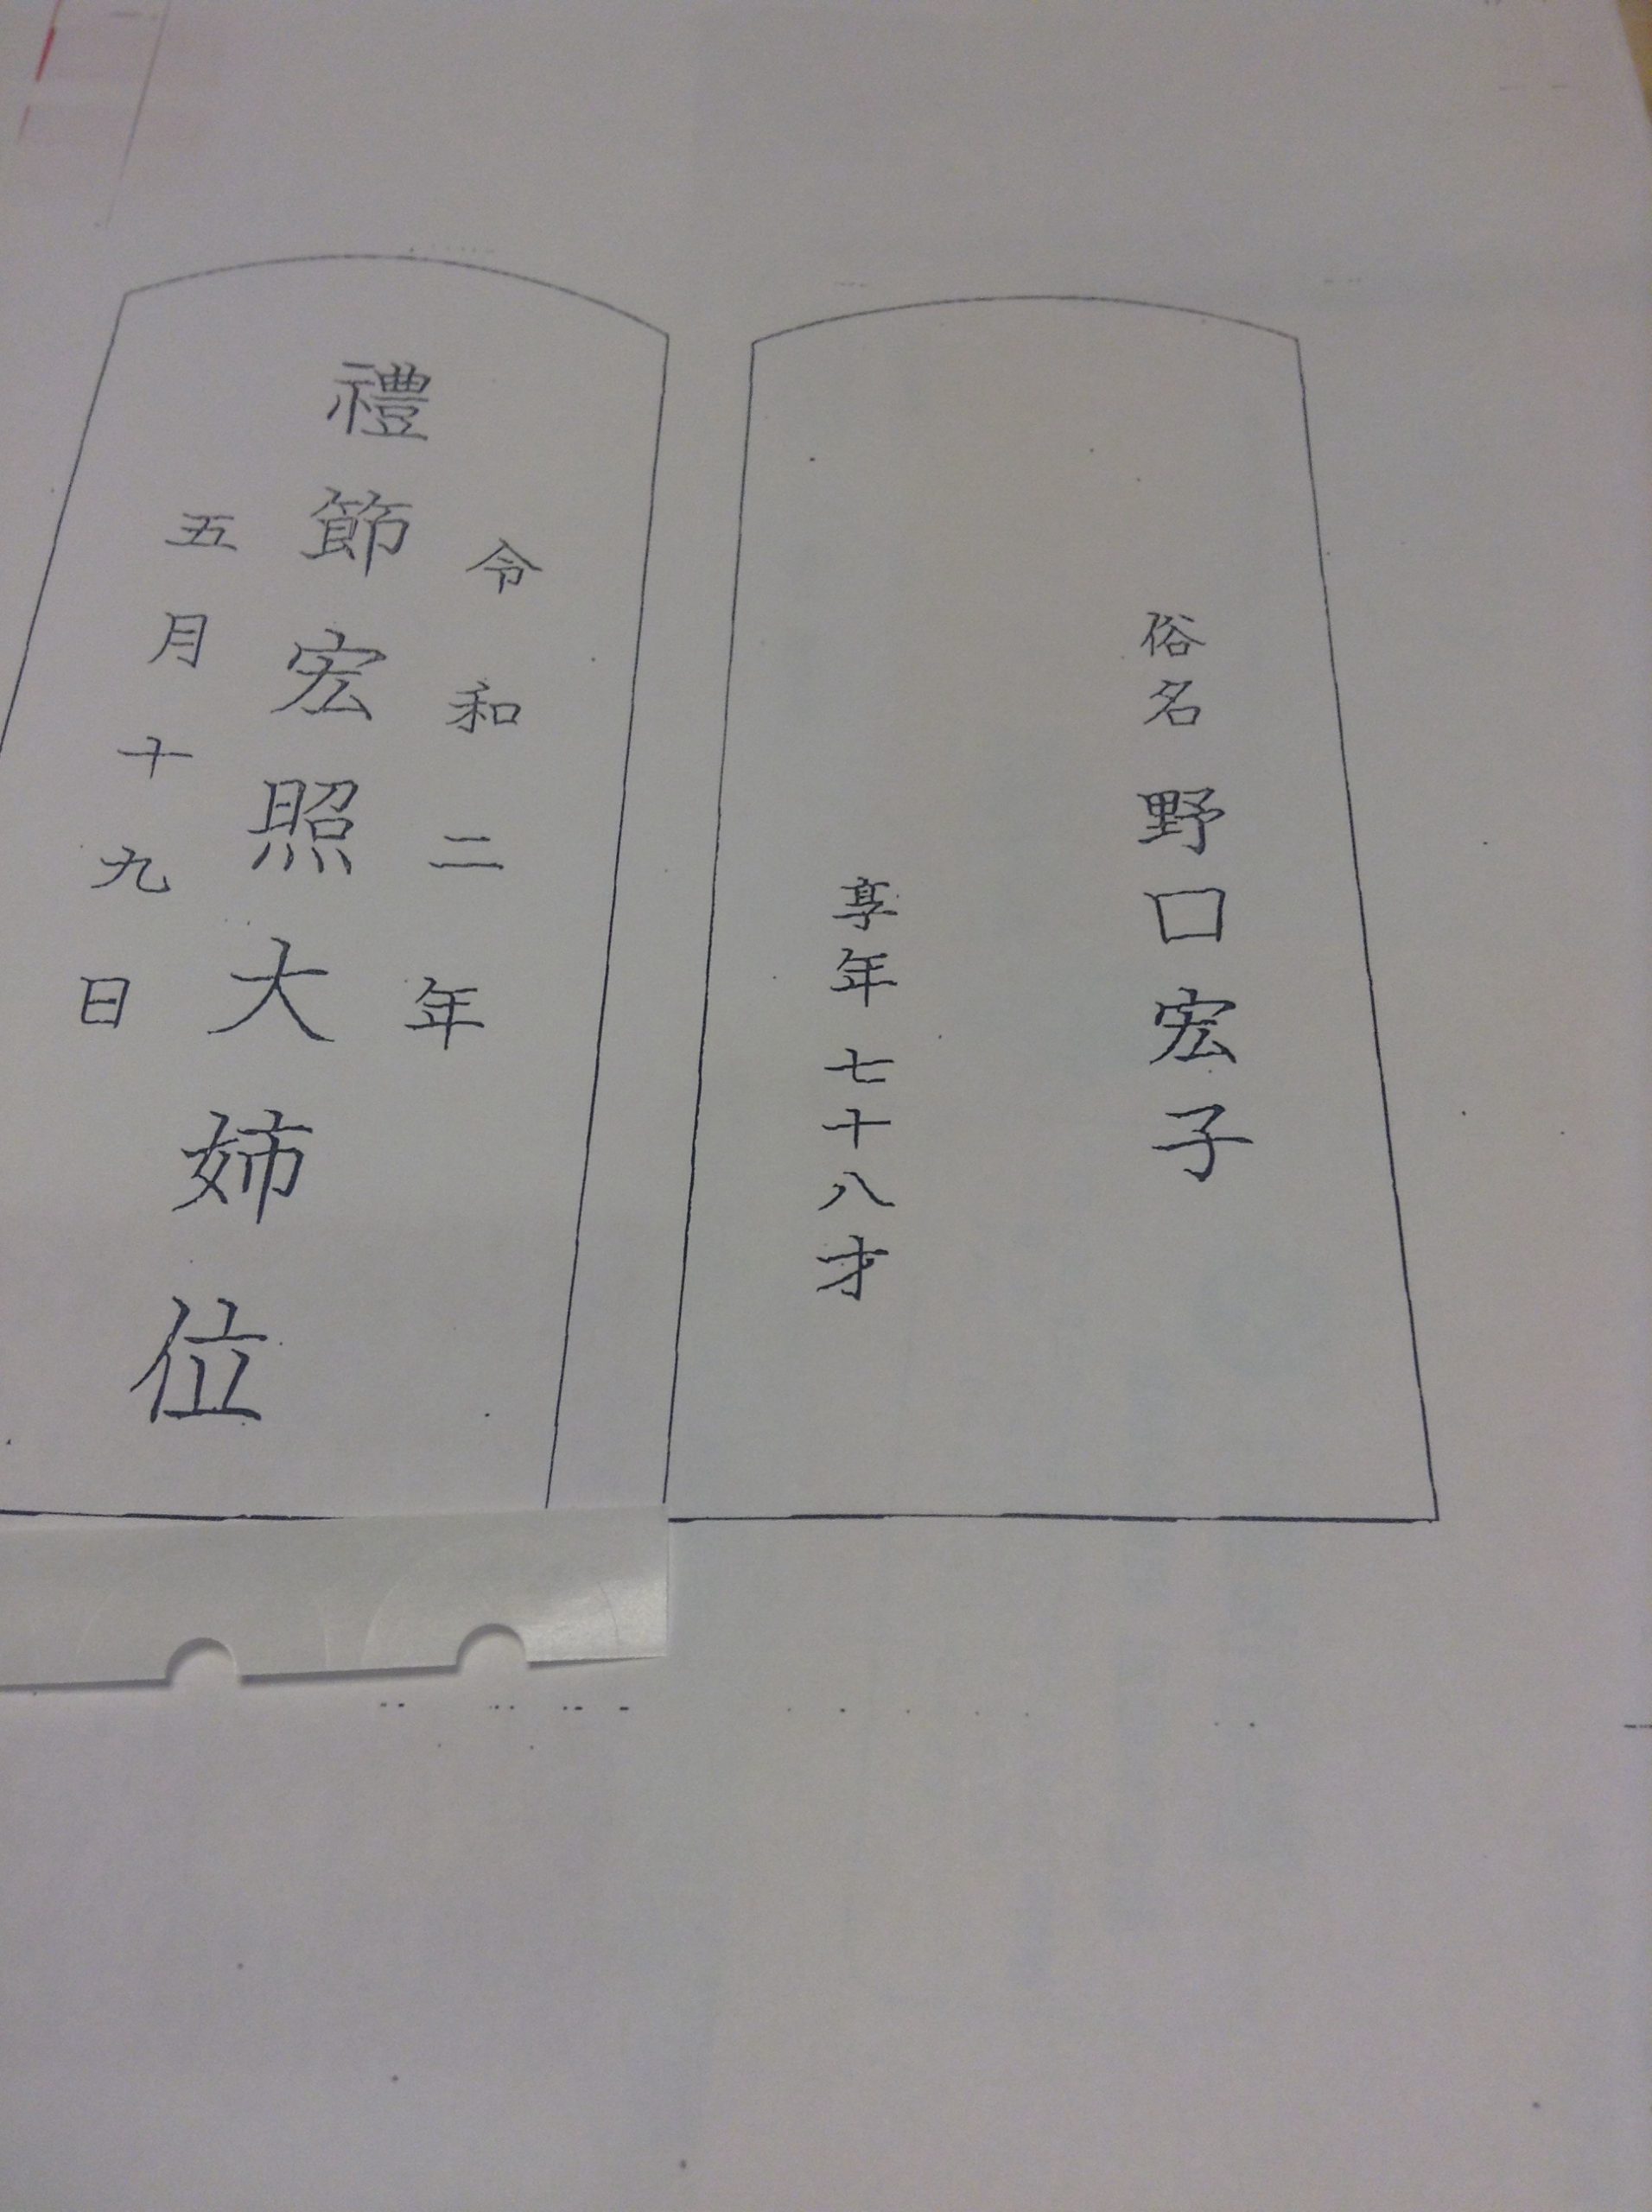 俗名 野口宏子
享年 七十八才
令和二年
禮節宏照大姉位
五月十九日